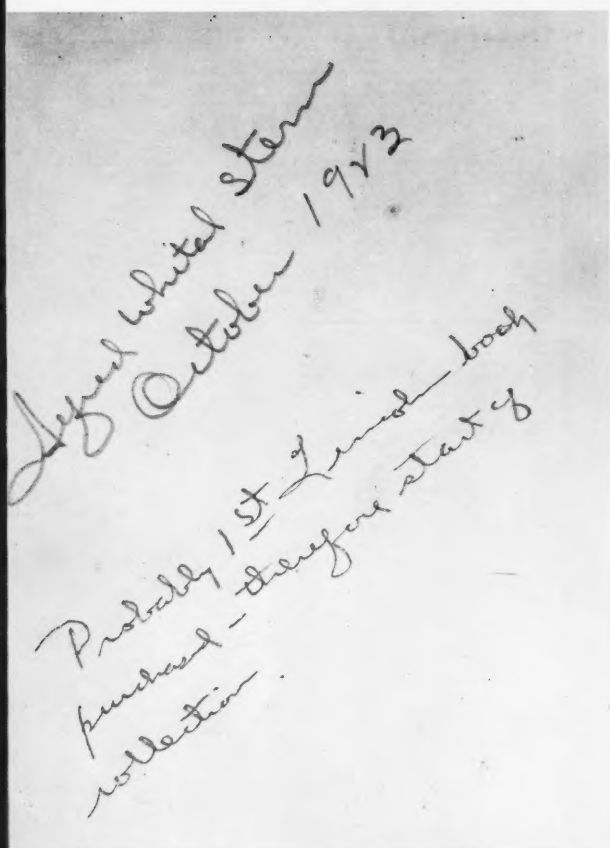 Alfred Whital Stern
October 1923
Probably 1st Lincoln book
purchased - therefore start of
collection.